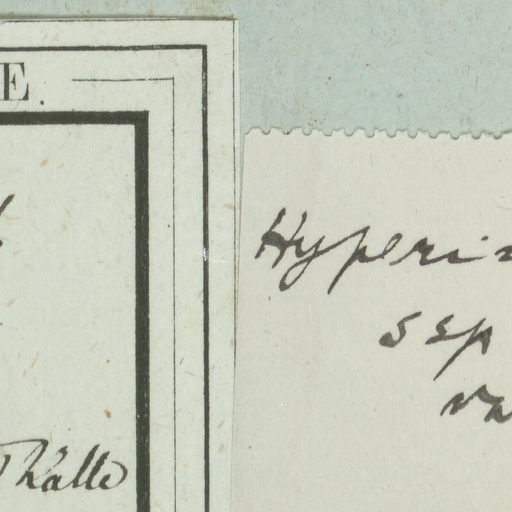 E.
Thalle
Hyperi
sep
va